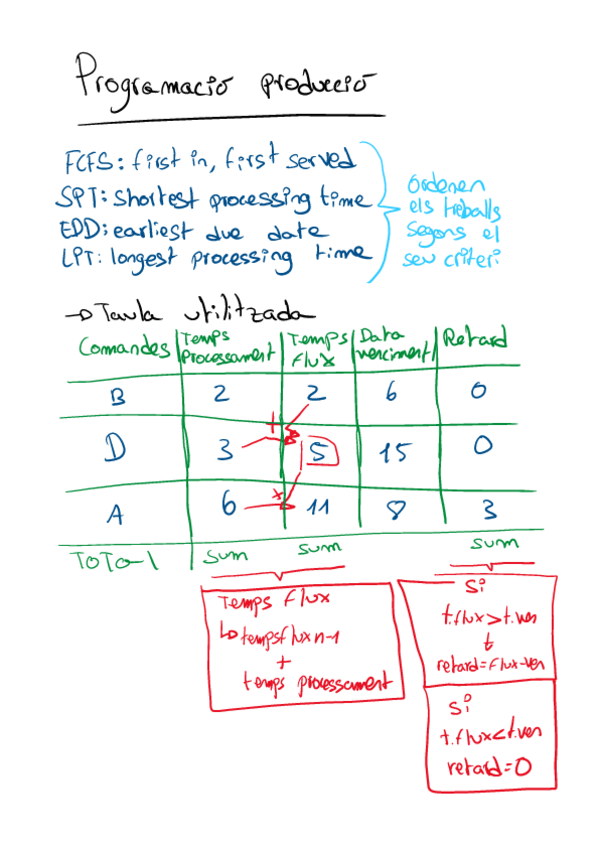 Programació producció
FCFS: first in, first served
SPT: shortest processing time
EDD: earliest due date
LPT: longest processing time
Ordenen
els treballs
segons el
seu criteri
→ Taula utilitzada
Comandes | Temps Processament | Temps flux | Data venciment | Retard
B 2 2 6 0
D 3 5 15 0
A 6 11 8 3
TOTAL sum sum sum
+
+
Temps flux
↳ tempsflux n-1
+
temps processament
Si
t.flux>t.ven
↓
retard=flux-ven
Si
t.flux<t.ven
retard=0